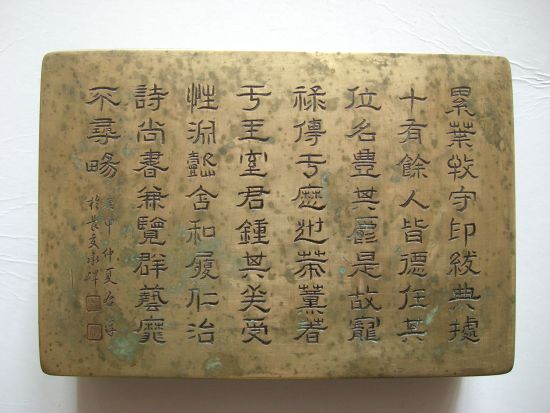 累葉牧守印紱典據
十有餘人皆德任其
位名豐其爵是故寵
祿傳于歷世策薰著
于王室君鍾其美受
性淵懿含和履仁治
詩尚書兼覽群藝靡
不尋暢
申仲夏
承碑